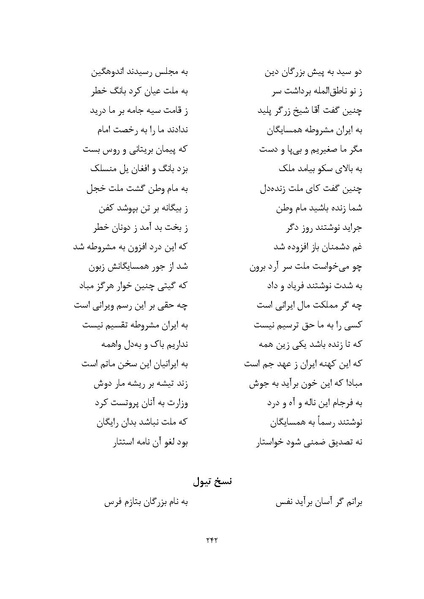 دو سید به پیش بزرگان دین به مجلس رسیدند اندوهگین
ز نو ناطق‌المله برداشت سر به ملت عیان کرد بانگ خطر
چنین گفت آقا شیخ زرگر پلید ز قامت سیه جامه بر ما درید
به ایران مشروطه همسایگان ندادند ما را به رخصت امام
مگر ما صغیریم و بی‌پا و دست که پیمان بریتانی و روس بست
به بالای سکو بیامد ملک بزد بانگ و افغان یل منسلک
چنین گفت کای ملت زنده‌دل به مام وطن گشت ملت خجل
شما زنده باشید مام وطن ز بیگانه بر تن بپوشد کفن
جراید نوشتند روز دگر ز بخت بد آمد ز دونان خطر
غم دشمنان باز افزوده شد که این درد افزون به مشروطه شد
چو می‌خواست ملت سر آرد برون شد از جور همسایگانش زبون
به شدت نوشتند فریاد و داد که گیتی چنین خوار هرگز مباد
چه گر مملکت مال ایرانی است چه حقی بر این رسم ویرانی است
کسی را به ما حق ترسیم نیست به ایران مشروطه تقسیم نیست
که تا زنده باشد یکی زین همه نداریم باک و به‌دل واهمه
که این کهنه ایران ز عهد جم است به ایرانیان این سخن ماتم است
مبادا که این خون برآید به جوش زند تیشه بر ریشه مار دوش
به فرجام این ناله و آه و درد وزارت به آنان پروتست کرد
نوشتند رسماً به همسایگان که ملت نباشد بدان رایگان
نه تصدیق ضمنی شود خواستار بود لغو آن نامه استتار
نسخ تیول
براتم گر آسان برآید نفس به نام بزرگان بتازم فرس
۲۴۲